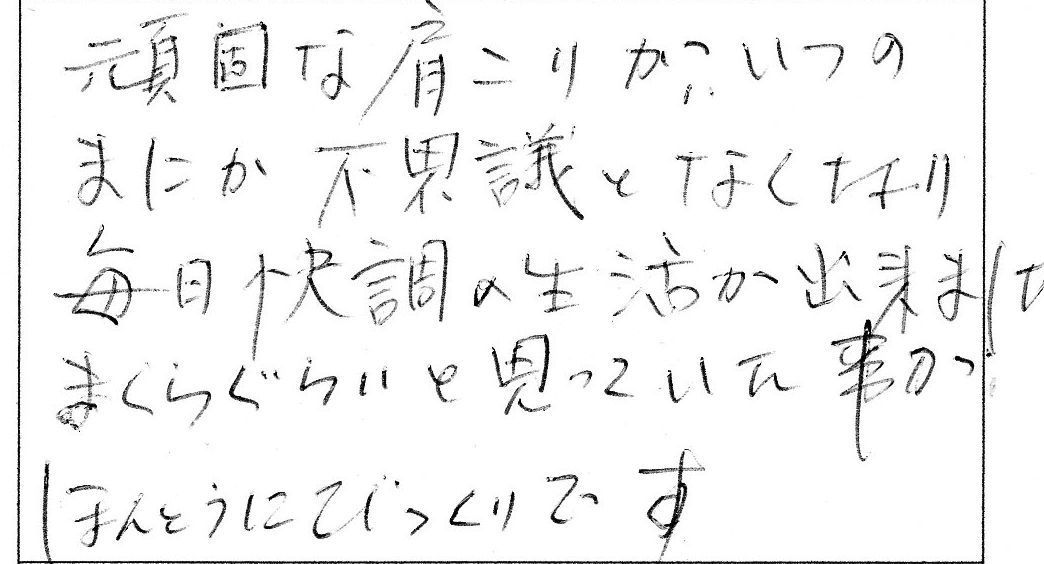 頑固な肩こりが、いつの
まにか不思議となくなり
毎日快調の生活が出来ました
まくらぐらいと思っていた事が
ほんとうにびっくりです